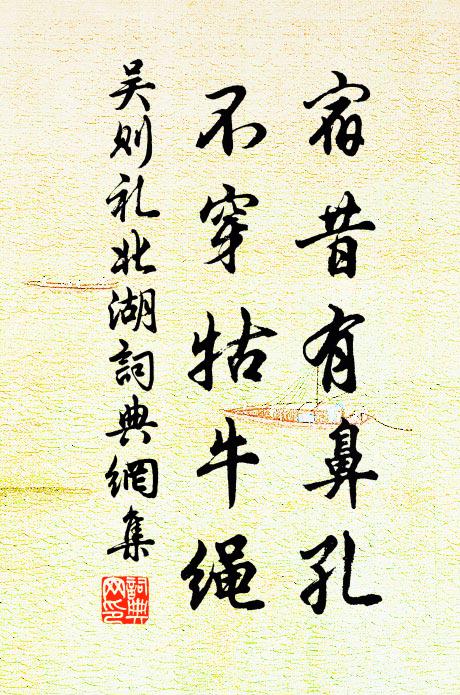 宿昔有鼻孔
不穿牯牛绳
吴则礼北湖詞典網集
詞典
网印